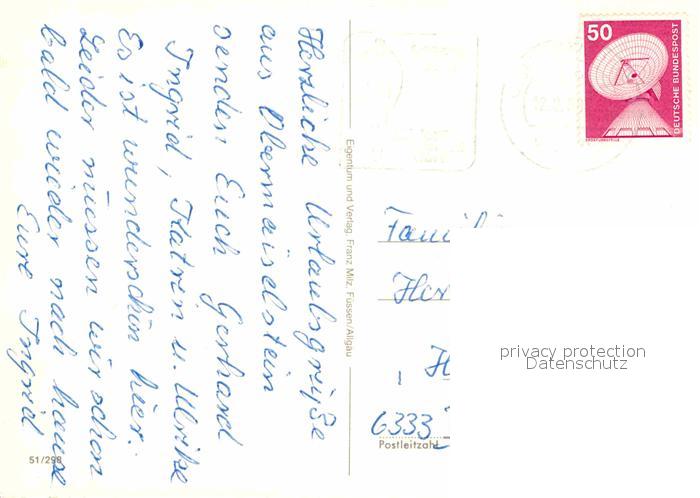 Herzliche Urlaubsgrüße
aus Obermaiselstein
senden Euch Gerhard
Ingrid, Katrin u. Ulrike
Es ist wunderschön hier.
Leider müssen wir schon
bald wieder nach hause
Eure Ingrid
51/298
Eigentum und Verlag: Franz Milz, Füssen/Allgäu
50
DEUTSCHE BUNDESPOST
ERDEFUNKSTELLE
Fami
Her
H
6333
Postleitzahl
privacy protection
Datenschutz